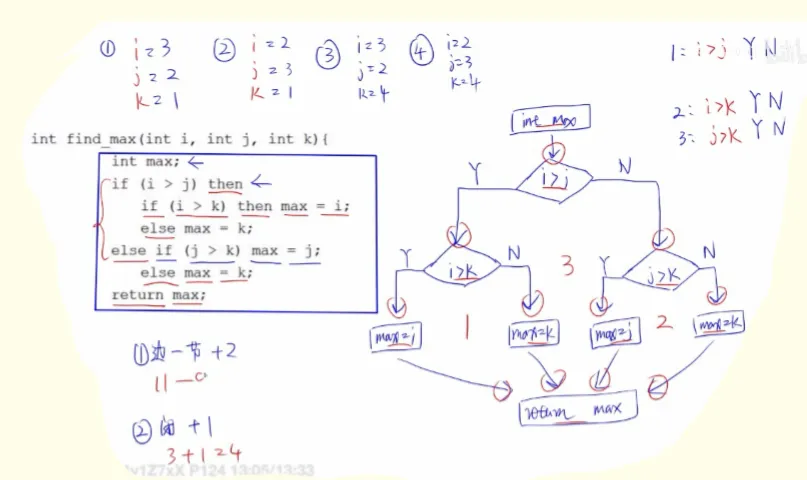 ① i=3 j=2 k=1
② i=2 j=3 k=1
③ i=3 j=2 k=4
④ i=2 j=3 k=4
1: i>j Y N
2: i>k Y N
3: j>k Y N
int find_max(int i, int j, int k){
int max;
if (i > j) then
if (i > k) then max = i;
else max = k;
else if (j > k) max = j;
else max = k;
return max;
int max
Y
i>j
N
Y
i>k
N
3
Y
j>k
N
max=i
1
max=k
max=j
2
max=k
return max
①边-节+2
11-9
② +1
3+1=4
v1Z7xX P124 13:05/13:33